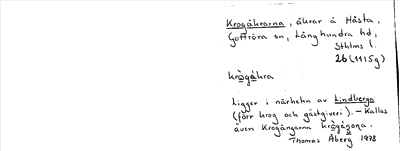 Krogåkrarna, åkrar å Håsta,
Gottröra sn, Långhundra hd,
Sthlms l.
26 (1115g)
krògåkra
Ligger i närheten av Lindberga
(förr krog och gästgiveri). – Kallas
även Krogängarna krògǟŋa.
Thomas Åberg 1978